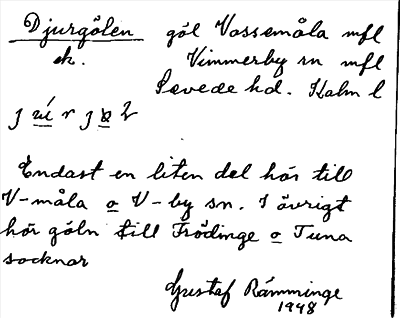 Djurgölen göl Vassemåla mfl
sk. Vimmerby sn mfl
Sevede hd. Kalm l
Endast en liten del hör till
V-måla o V-by sn. I övrigt
hör göln till Frödinge o Tuna
socknar
Gustaf Rämminge
1948